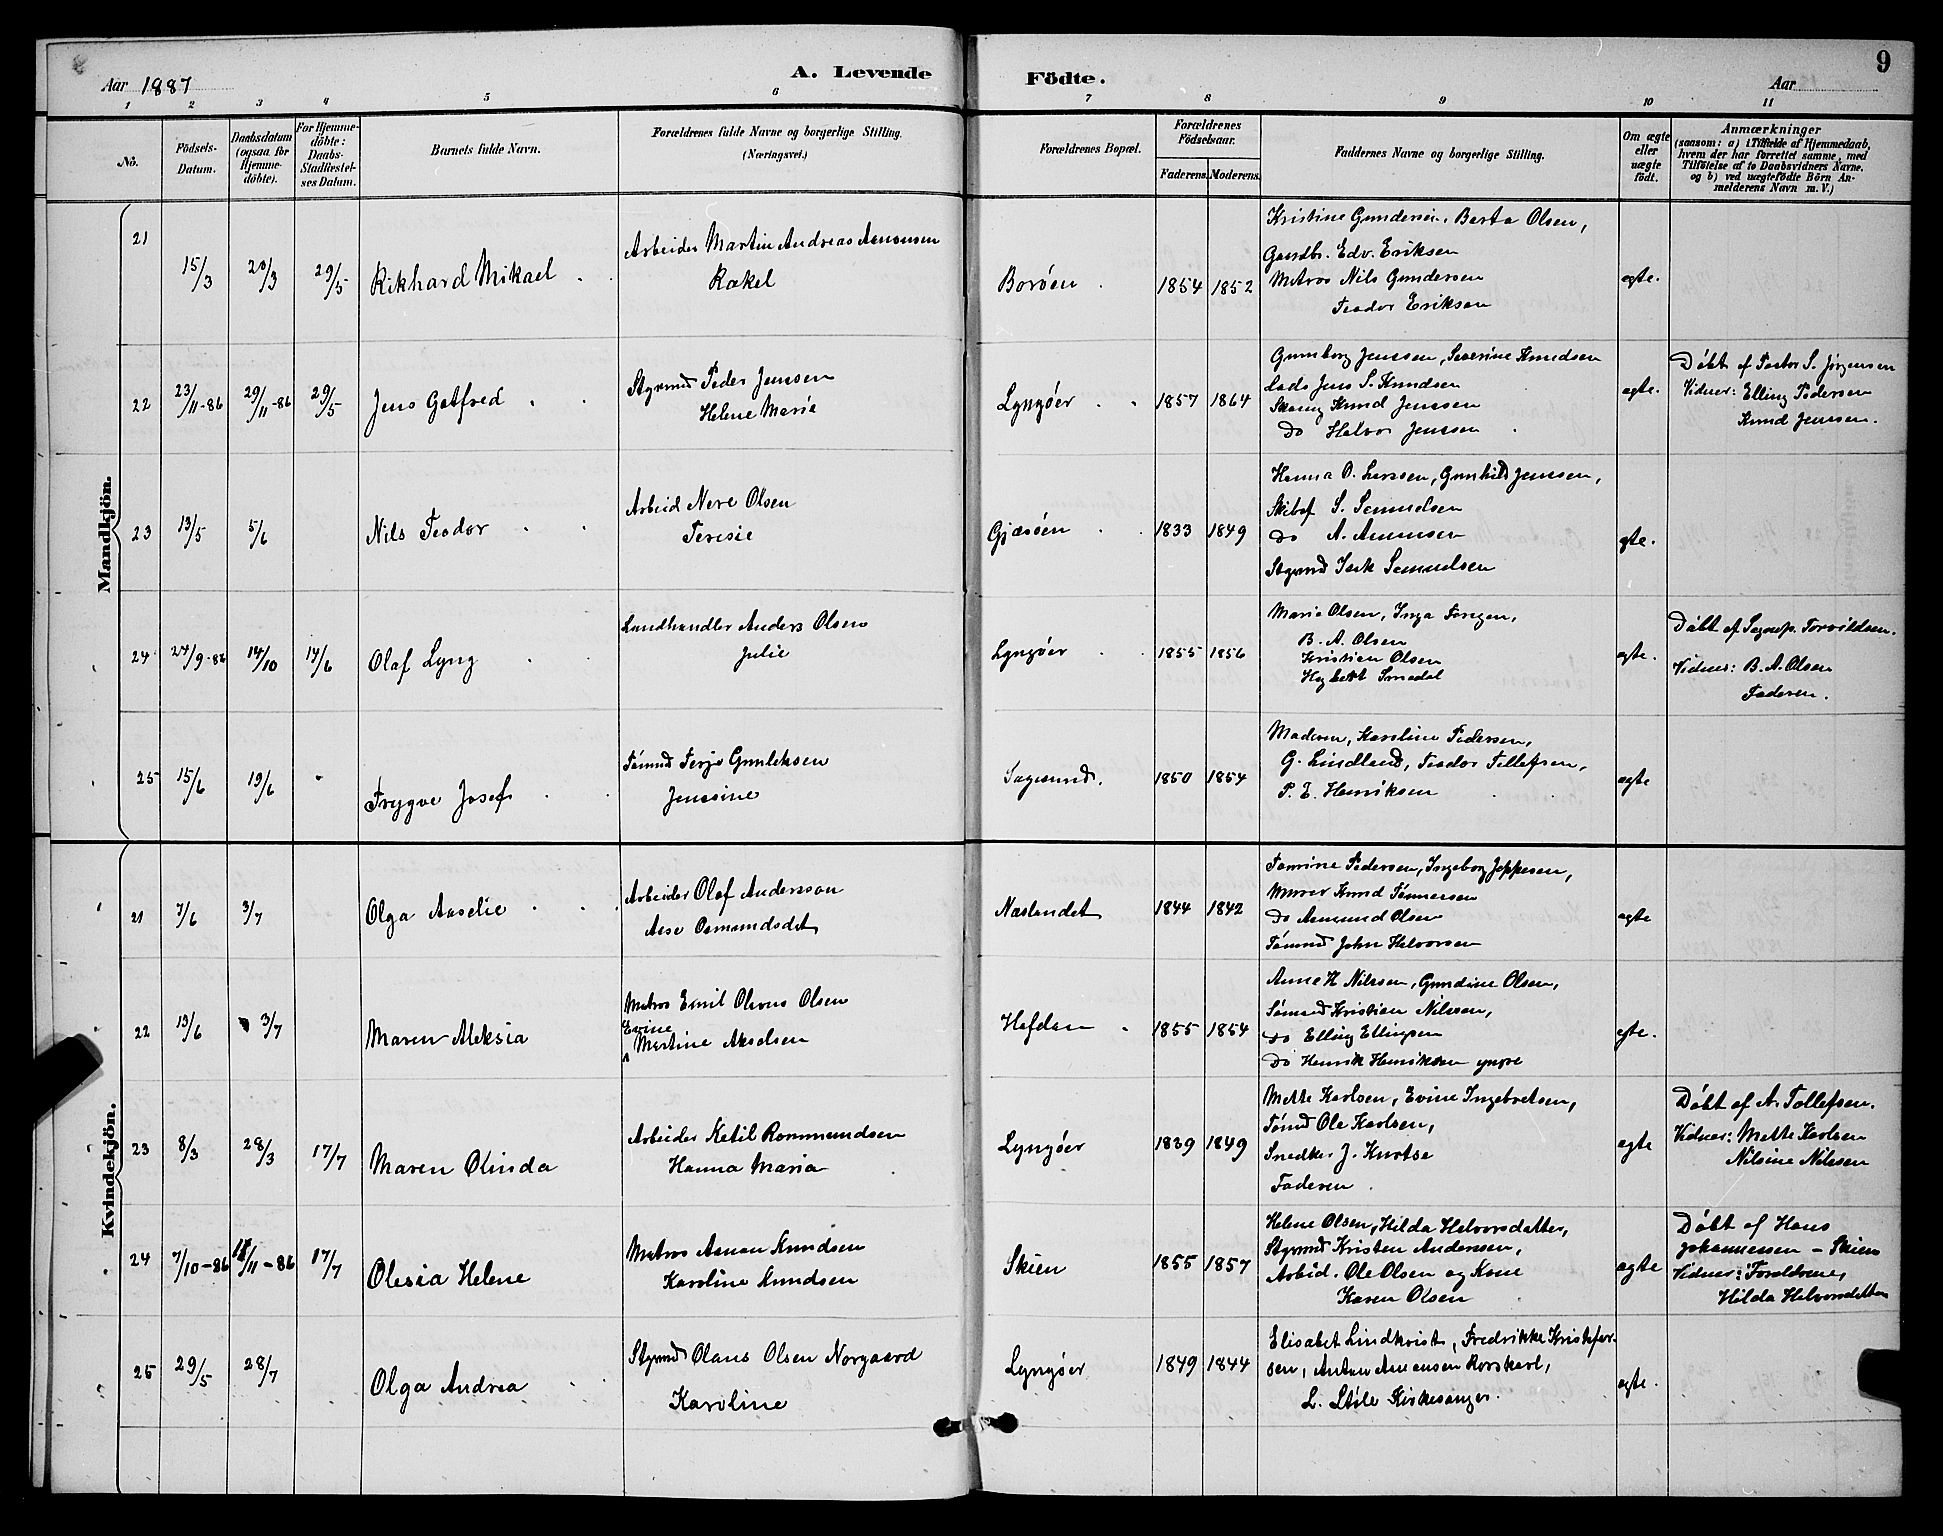 Aar 1887
A. Levende
Födte.
Aar
9
1 2 3 4 5 6 7 8 9 10 11
No.
Födsels-
Datum.
Daabsdatum
(ogsaa for
Hjemme-
döbte).
For Hjemme-
döbte:
Daabs-
Stadfæstel-
ses Datum.
Barnets fulde Navn.
Forældrenes fulde Navne og borgerlige Stilling.
(Næringsvei.)
Forældrenes Bopæl.
Forældrenes
Födselsaar.
Faderens. Moderens.
Faddernes Navne og borgerlige Stilling.
Om ægte
eller
uægte
födt.
Anmærkninger
(saasom: a) i Tilfælde af Hjemmedaab,
hvem der har forrettet samme, med
Tilföielse af to Daabsvidners Navne,
og b) ved uægtefödte Börn An-
melderens Navn m. V.)
Mandkjön.
21
15/3 20/3 29/5 Rikhard Mikael
Arbeider Martin Andreas Aanonsen
Rakel
Borøen 1854 1852
Kristine Gundersen, Berta Olsen,
Gaardbr. Edv. Eriksen
Matros Nils Gundersen
Teodor Eriksen
ægte.
22 23/11-86 29/11-86 29/5 Jens Gotfred
Styrmd Peder Jensen
Helene Marie
Lyngøer 1857 1864
Gunnborg Jenssen, Severine Knudsen
Lods Jens S. Knudsen
Knud Jenssen
do Halvor Jenssen
ægte.
Døbt af Pastor S. Jørgensen
Vidner: Elling Pedersen
Knud Jenssen.
23 13/5 5/6 Nils Teodor
Arbeid Nere Olsen
Teresie
Gjæsøen 1833 1849
Hanna O. Larssen, Gunhild Jenssen,
Skibsf S. Samuelsen
do A. Amundsen
Styrmd Isak Samuelsen
ægte.
24 24/9-86 14/10 14/6 Olaf Lyng
Landhandler Anders Olsen
Julie
Lyngøer 1855 1856
Maria Olsen, Inga
B. A. Olsen
Kristian Olsen
Smedal
ægte.
Døbt af Sognep. Torvildsen.
Vidner: B. A. Olsen
Faderen.
25 15/6 19/6 Trygve Josef
Tømmd Terje Gunleksen
Jenssine
Sagesund. 1850 1854
Moderen, Karoline Pedersen,
G. Lindland, Teodor Tellefsen,
P. E. Henriksen
ægte
Kvindekjön.
21 7/6 3/7 Olga Aaselie
Arbeider Olaf Andersson
Aase Osmundsdat
Næslandet 1844 1842
Tomine Pedersen, Ingeborg Jeppesen,
Murer Knud Tønnessen
do Aamund Olsen
Tømmd John Halvorsen
ægte
22 13/6 3/7 Maren Aleksia
Matros Emil Olavus Olsen
Evine
Martine Akselsen
Hafdan 1855 1854
Anne H Nilssen, Gundine Olsen,
Sømnd Kristian Nilssen,
do Elling Ellingsen
do Henrik Henriksen yngre
ægte.
23 8/3 28/3 17/7 Maren Olinda
Arbeider Ketil Rommundsen
Hanna Maria
Lyngøer 1839 1849
Mette Karlsen, Evine Ingebretsen,
Tømd Ole Karlsen,
Snedker J. Knutse
Faderen.
ægte
Døbt af A. Tollefsen.
Vidner: Mette Karlsen
Nilsine Nilssen
24 7/10-86 /11-86 17/7 Olesia Helene
Matros Aanon Knudsen
Karoline Knudsen
Skien 1855 1857
Helene Olsen, Hilda Halvorsdatter,
Styrmd Kristen Anderssen,
Arbeid. Ole Olsen og Kone
Karen Olsen
ægte
Døbt af Hans
Johannessen – Skien
Vidner: Foreldrene,
Hilda Halvorsdatter
25 29/5 28/7 Olga Andrea
Styrmd Olaus Olsen Norgaard
Karoline
Lyngøer 1849 1844
Elisabet Lindkvist, Fredrikke Kristofer-
sen, Anton Aanonsen Rorskarl,
L. Støle Kirkesanger.
ægte.